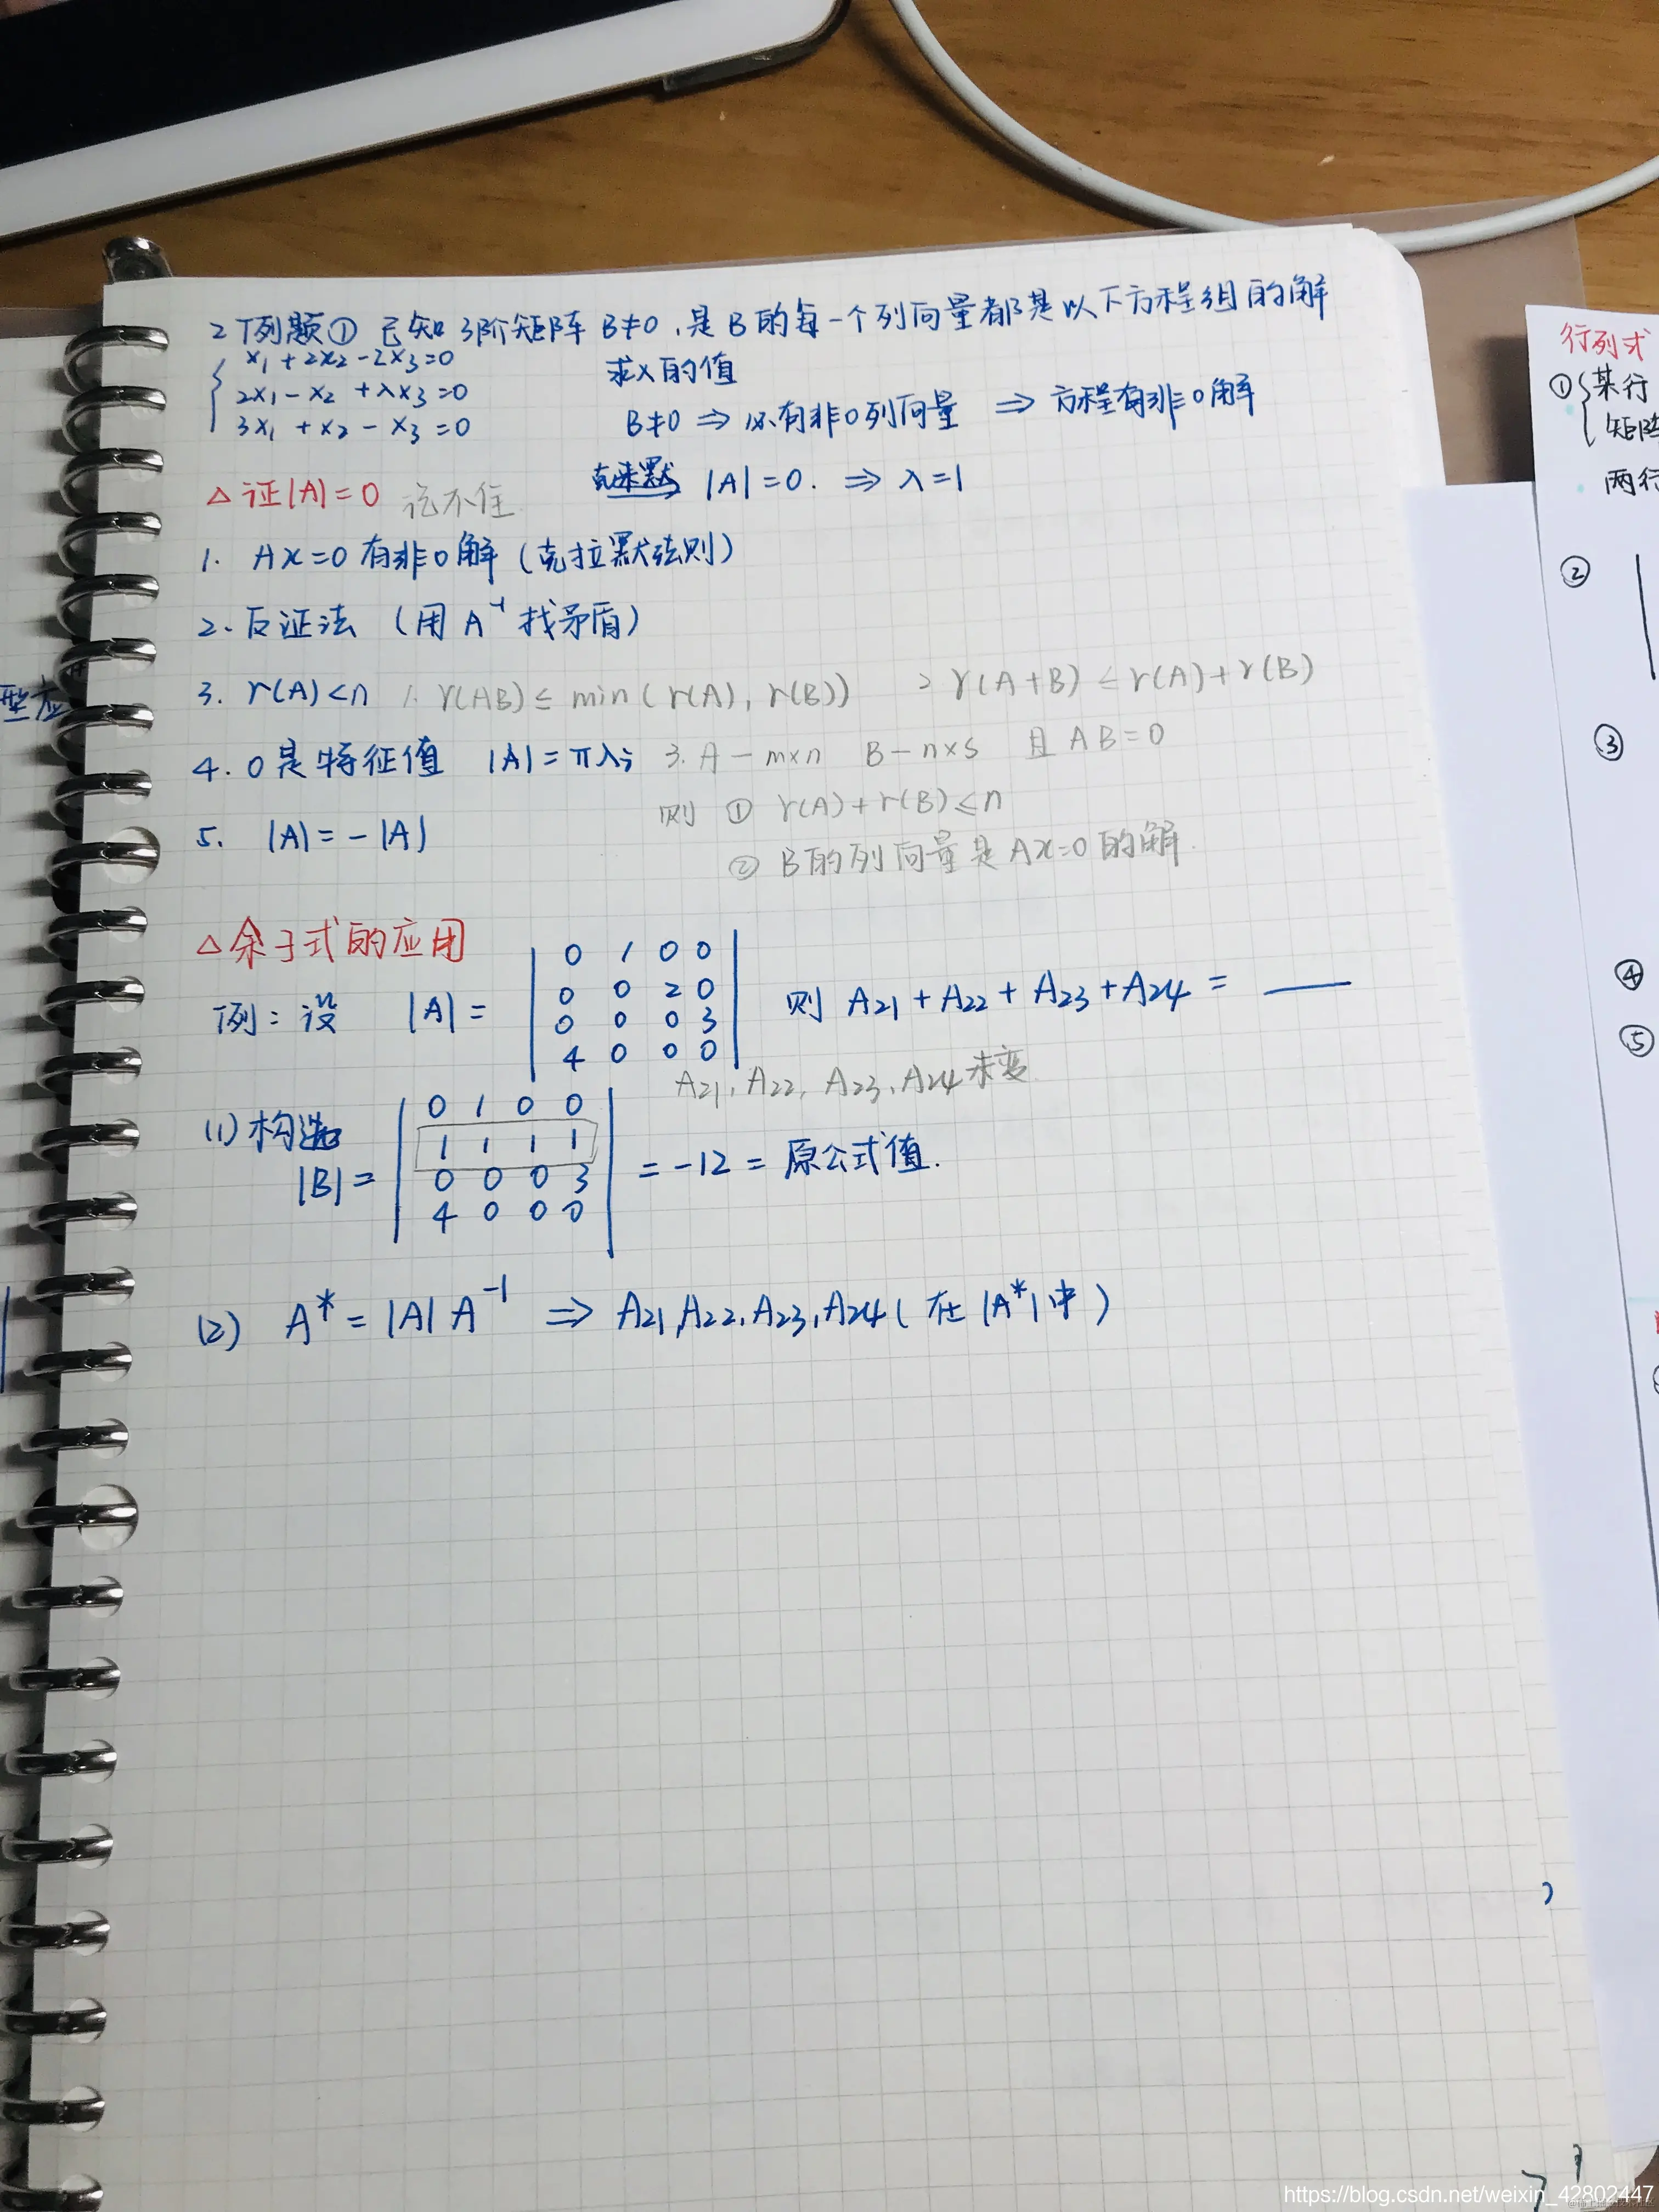 2 例题① 已知 3阶矩阵 B≠0,是B的每一个列向量都是以下方程组的解
x₁+2x₂-2x₃=0
2x₁-x₂+λx₃=0
3x₁+x₂-x₃=0
求λ的值
B≠0 ⇒ 必有非0列向量 ⇒ 方程有非0解
克来默 |A|=0. ⇒ λ=1
△证|A|=0 记不住
1. Ax=0 有非0解(克拉默法则)
2. 反证法 (用 A⁻¹ 找矛盾)
3. r(A)<n 1. r(AB)≤min(r(A), r(B)) 2 r(A+B)≤r(A)+r(B)
4. 0是特征值 |A|=πλi 3. A-m×n B-n×s 且 AB=0
则 ① r(A)+r(B)≤n
5. |A|=-|A|
② B的列向量是Ax=0的解.
△余子式的应用
例:设 |A|= 则 A₂₁+A₂₂+A₂₃+A₂₄=
0 1 0 0
0 0 2 0
0 0 0 3
4 0 0 0
A₂₁,A₂₂,A₂₃,A₂₄未变
(1)构造
|B|= =-12=原公式值.
0 1 0 0
1 1 1 1
0 0 0 3
4 0 0 0
(2) A*=|A|A⁻¹ ⇒ A₂₁,A₂₂,A₂₃,A₂₄(在|A*|中)
型应
行列式
①某行
矩阵
两行
②
③
④
⑤
https://blog.csdn.net/weixin_42802447